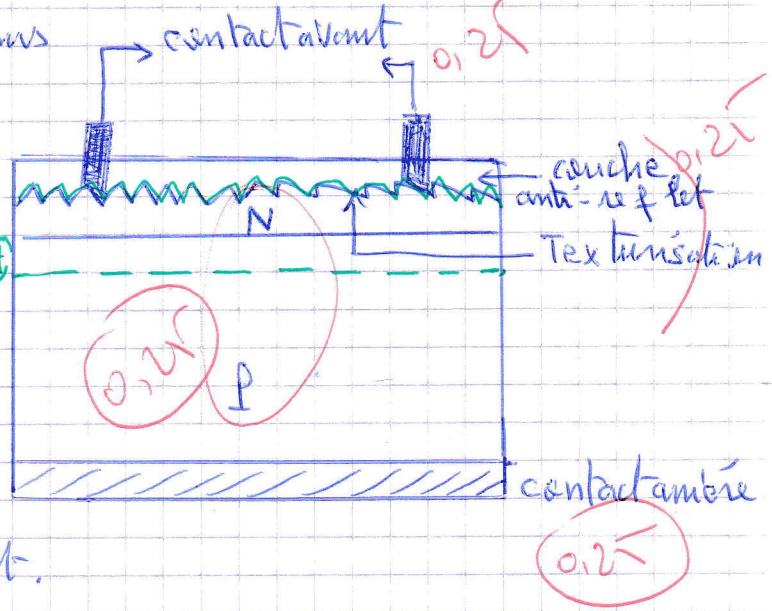 contact avant
0,25
0,25
couche
anti-reflet
N
Texturisation
0,25
P
contact arrière
0,25
t.